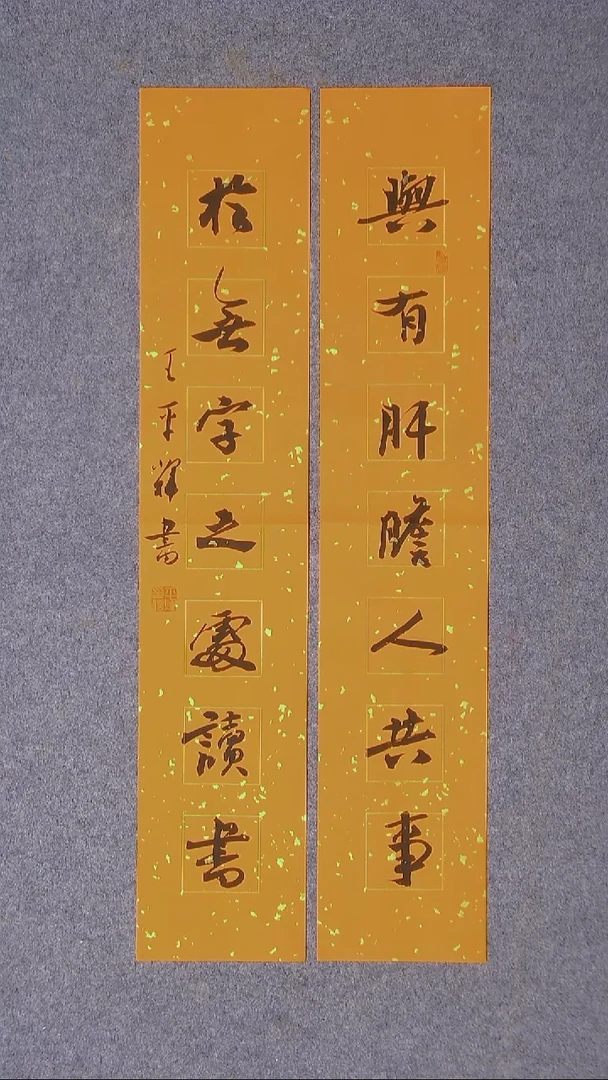 與有肝膽人共事
於無字之處讀書
王平輝書